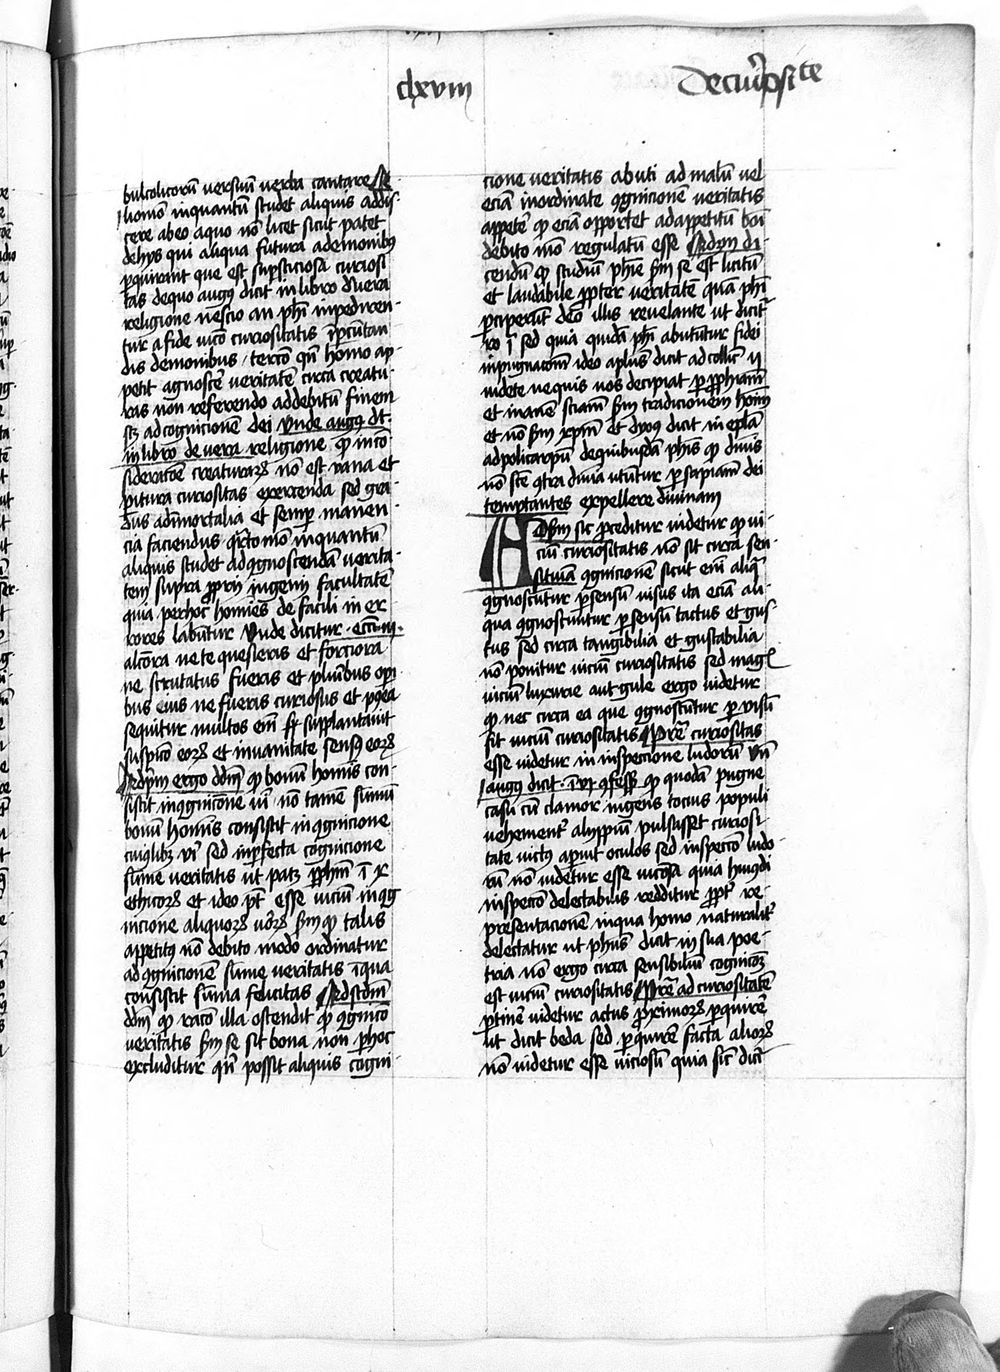 clxviii
De curiositate
bulcolicorum versuum verba cantare Alio
modo inquantum studet aliquis addis-
cere ab eo a quo non licet sicut patet
de hys qui aliqua futura a demonibus
perquirunt que est superstitiosa curiosi
tas de quo augus dicit in libro de vera
religione nescio an phi inpediren-
tur a fide vicio curiositatis in percunctan
dis demonibus / tercio quando homo ap-
petit agnoscere veritatem circa creatu-
ras non referendo ad debitum finem
scilicet ad cognicionem dei Unde augus dicit
in libro de vera religione quod in con
sideracione creaturarum non est vana et
peritura curiositas exercenda sed gra
dus ad inmortalia et semper manen-
cia faciendus Quarto modo inquantum
aliquis studet ad cognoscendam verita-
tem supra proprii ingenii facultatem
quia per hoc homines de facili in er
rores labuntur Unde dicitur eccli iii
alciora ne te quesieris et forciora
ne scrutatus fueris et pluribus operi
bus eius ne fueris curiosus et postea
sequitur multos enim supplantavit
suspicio eorum et in vanitate sensus eorum
Ad primum ergo dicendum quod bonum hominis con-
sistit in cognicione veri non tamen summum
bonum hominis consistit in cognicione
cuiuslibet veri sed in perfecta cognicione
summe veritatis ut patet per phm in x
ethicorum et ideo potest esse vicium in cog
nicione aliquorum verorum secundum quod talis
appetitus non debito modo ordinatur
ad cognicionem summe veritatis in qua
consistit summa felicitas Ad secundum
dicendum quod racio illa ostendit quod cognicio
veritatis secundum se sit bona non per hoc
excluditur quin possit aliquis cogni
cione veritatis abuti ad malum vel
eciam inordinate cognicionem veritatis
appetere quod eciam opportet ad appetitum boni
debito modo regulatum esse Ad tercium di
cendum quod studium phie secundum se est licitum
et laudabile propter veritatem quam phi
perceperunt deo illis revelante ut dicitur
ro i sed quia quidam phi abutuntur fidei
inpugnacionem ideo apostolus dicit ad coll ii
videte ne quis vos decipiat per phiam
et inanem scienciam secundum tradicionem hominum
et non secundum xpm et dyoys dicit in epistola
ad policarpum de quibusdam phis quod divinis
non sancte contra divina utuntur per sapienciam dei
temptantes expellere divinam
Ad secundum sic proceditur videtur quod vi-
cium curiositatis non sit circa sen-
sitivam cognicionem sicut enim aliqua
cognoscuntur per sensum visus ita eciam ali-
qua cognoscuntur per sensum tactus et gus
tus sed circa tangibilia et gustabilia
non ponitur vicium curiositatis sed magis
vicium luxurie aut gule ergo videtur
quod nec circa ea que cognoscuntur per visum
sit vicium curiositatis Preterea curiositas
esse videtur in inspectione ludorum Unde
augus dicit in vi confess quod quodam pugne
casu cum clamor ingens tocius populi
vehementer alyppium pulsasset curiosi
tate victus aperuit oculos sed inspectio ludo
rum non videtur esse viciosa quia huiusmodi
inspectio delectabilis redditur propter re-
presentacionem in qua homo naturaliter
delectatur ut phus dicit in sua poe-
tria non ergo circa sensibilium cognicionem
est vicium curiositatis Preterea ad curiositatem
pertinere videtur actus proximorum perquirere
ut dicit beda sed perquirere facta aliorum
non videtur esse viciosum quia sicut dicitur